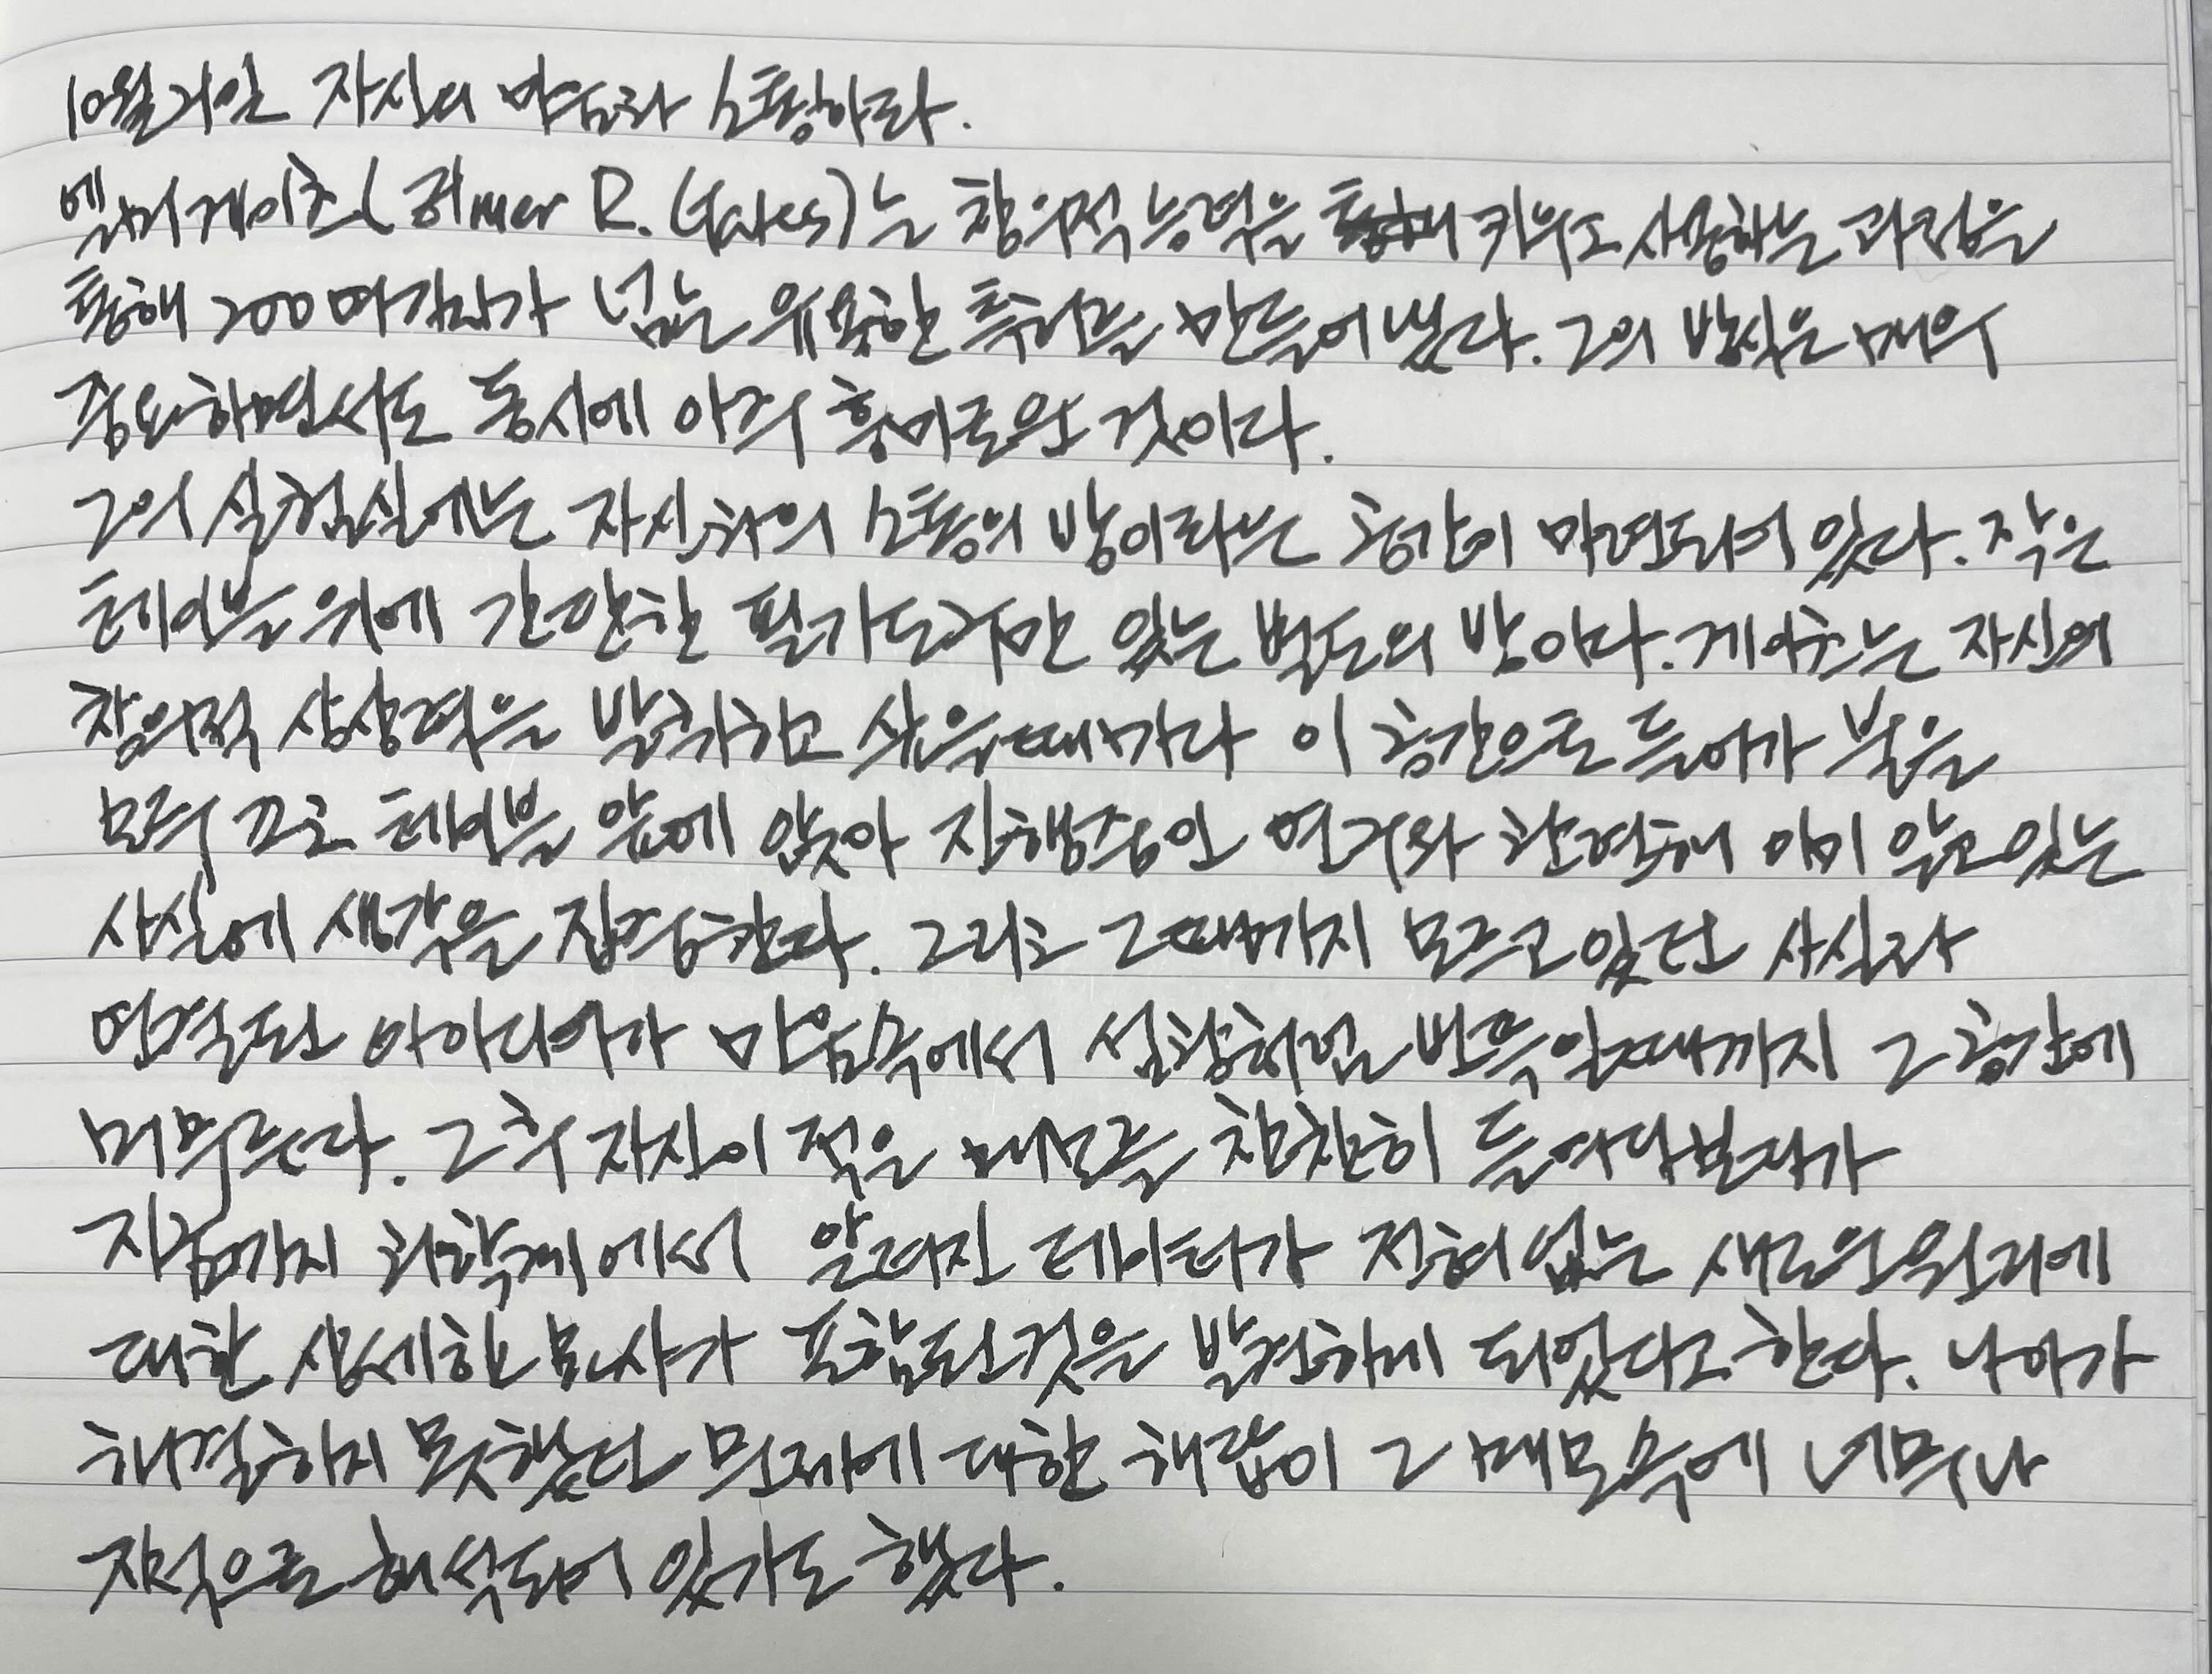 10월 21일 자신의 마음과 소통하라.
엘머 게이츠(Elmer R. Gates)는 창의적 능력을 통해 키우고 사용하는 과정을
통해 200여가지가 넘는 유용한 특허를 만들어냈다. 그의 방식은 매우
중요하면서도 동시에 아주 흥미로운 것이다.
그의 실험실에는 자신과의 소통의 방이라는 공간이 마련되어 있다. 작은
테이블 위에 간단한 필기도구만 있는 별도의 방이다. 게이츠는 자신의
창의적 상상력을 발휘하고 싶을때마다 이 공간으로 들어가 불을
모두 끄고 테이블 앞에 앉아 진행중인 연구와 관련해 이미 알고있는
사실에 생각을 집중한다. 그리고 그때까지 모르고있던 사실과
연결된 아이디어가 마음속에서 섬광처럼 번뜩일때까지 그 공간에
머무른다. 그후 자신이 적은 메모를 찬찬히 들여다보다가
지금까지 과학계에서 알려진 데이터가 전혀 없는 새로운 원리에
대한 상세한 묘사가 포함된것을 발견하게 되었다고 한다. 나아가
해결하지 못했던 문제에 대한 해답이 그 메모속에 너무나
지적으로 해석되어 있기도 했다.